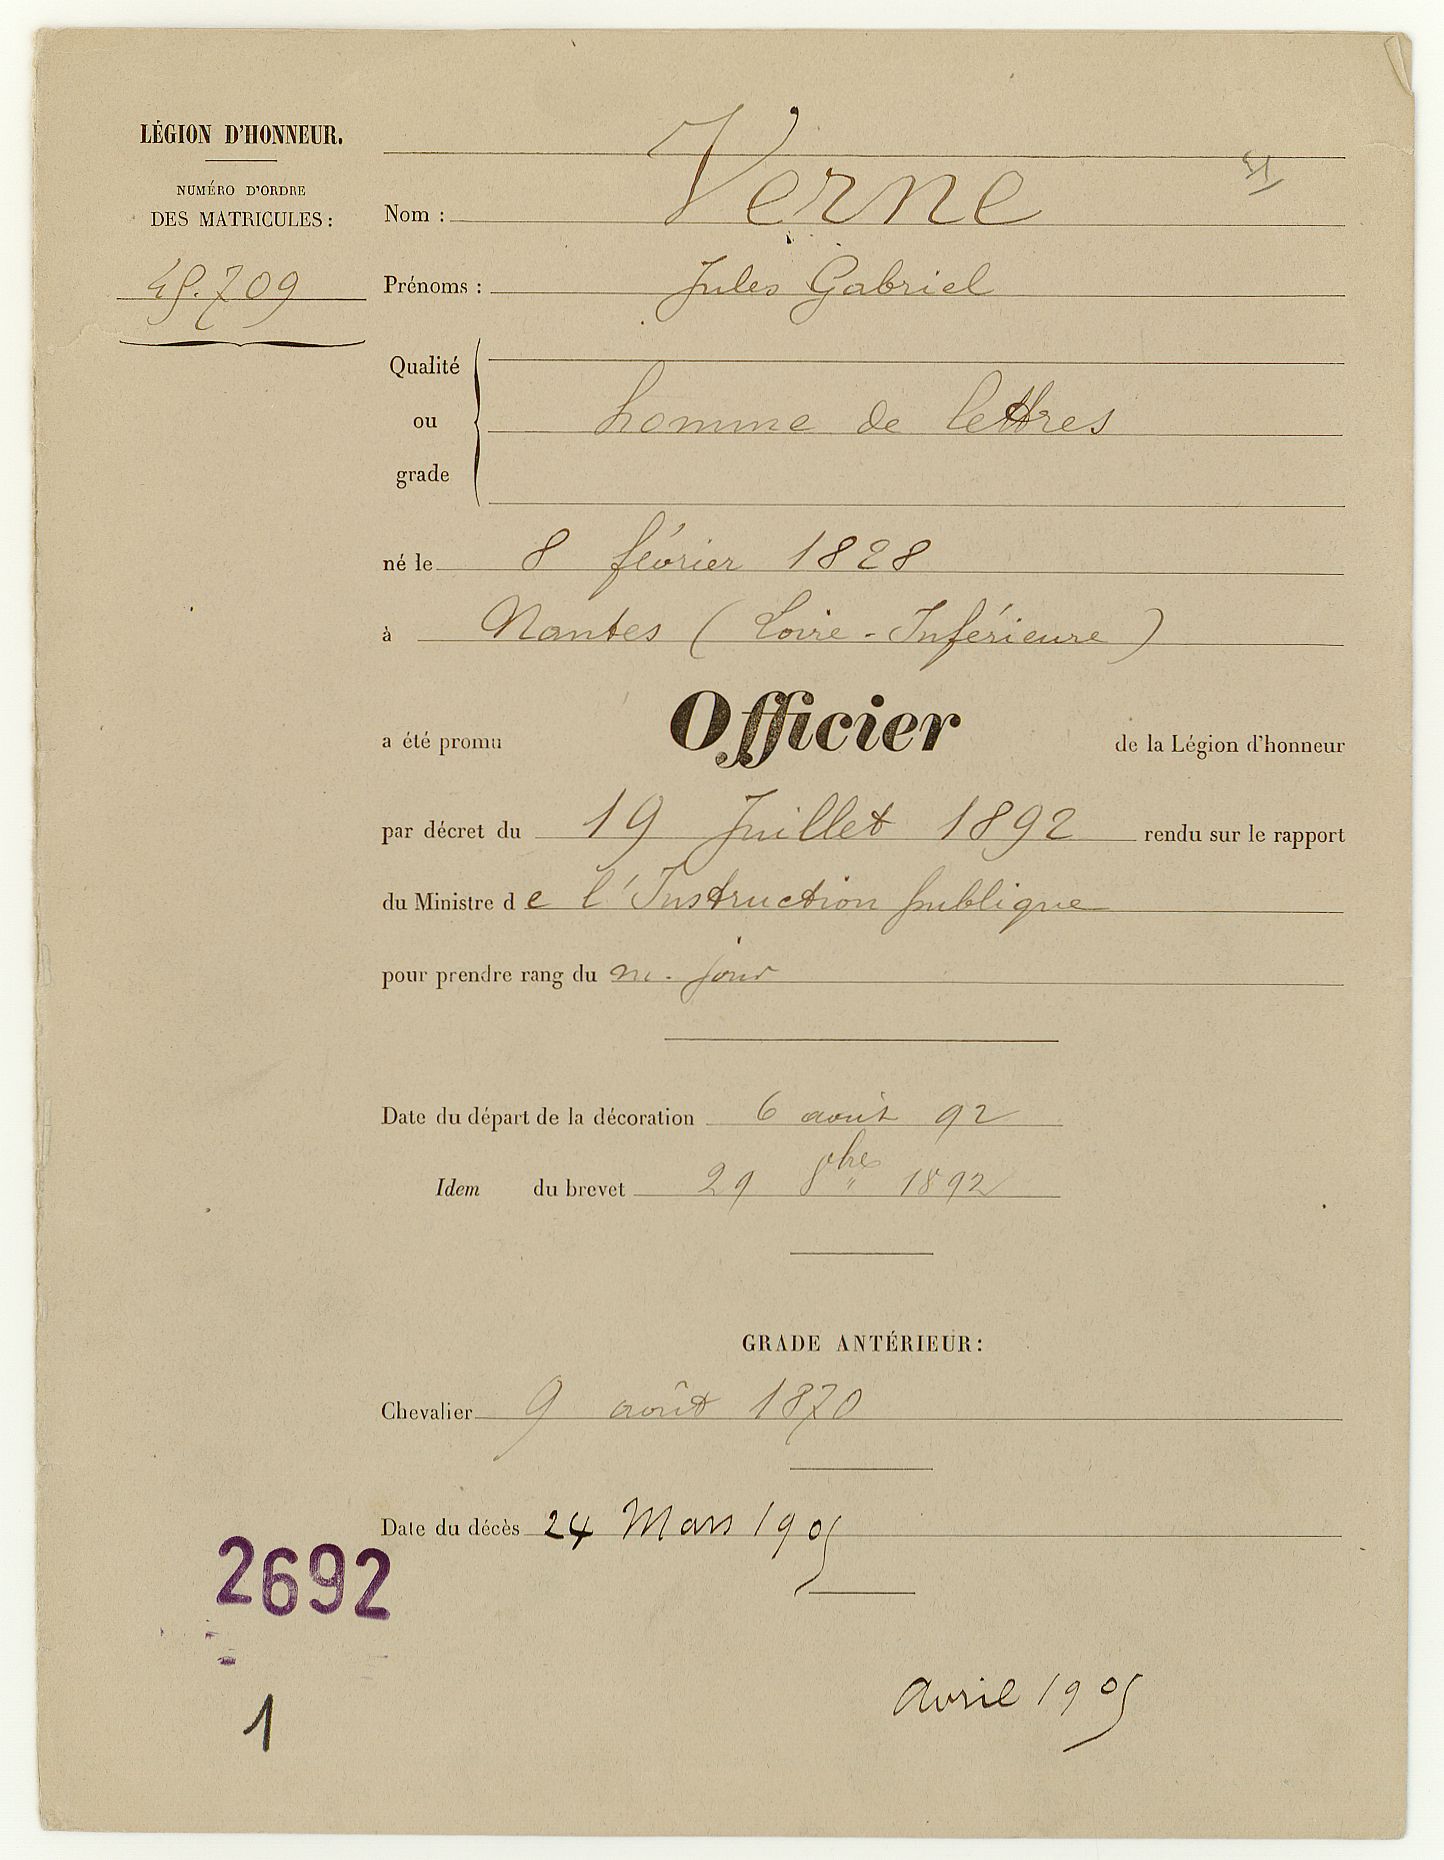 LÉGION D'HONNEUR.
NUMÉRO D'ORDRE
DES MATRICULES :
45.709
Nom : Verne
Prénoms : Jules Gabriel
Qualité
ou
grade
homme de lettres
né le 8 février 1828
à Nantes (Loire-Inférieure)
a été promu Officier de la Légion d'honneur
par décret du 19 Juillet 1892 rendu sur le rapport
du Ministre de l'Instruction publique
pour prendre rang du m. jour
Date du départ de la décoration 6 août 92
Idem du brevet 29 8bre 1892
GRADE ANTÉRIEUR :
Chevalier 9 août 1870
Date du décès 24 Mars 1905
2692
1
Avril 1905